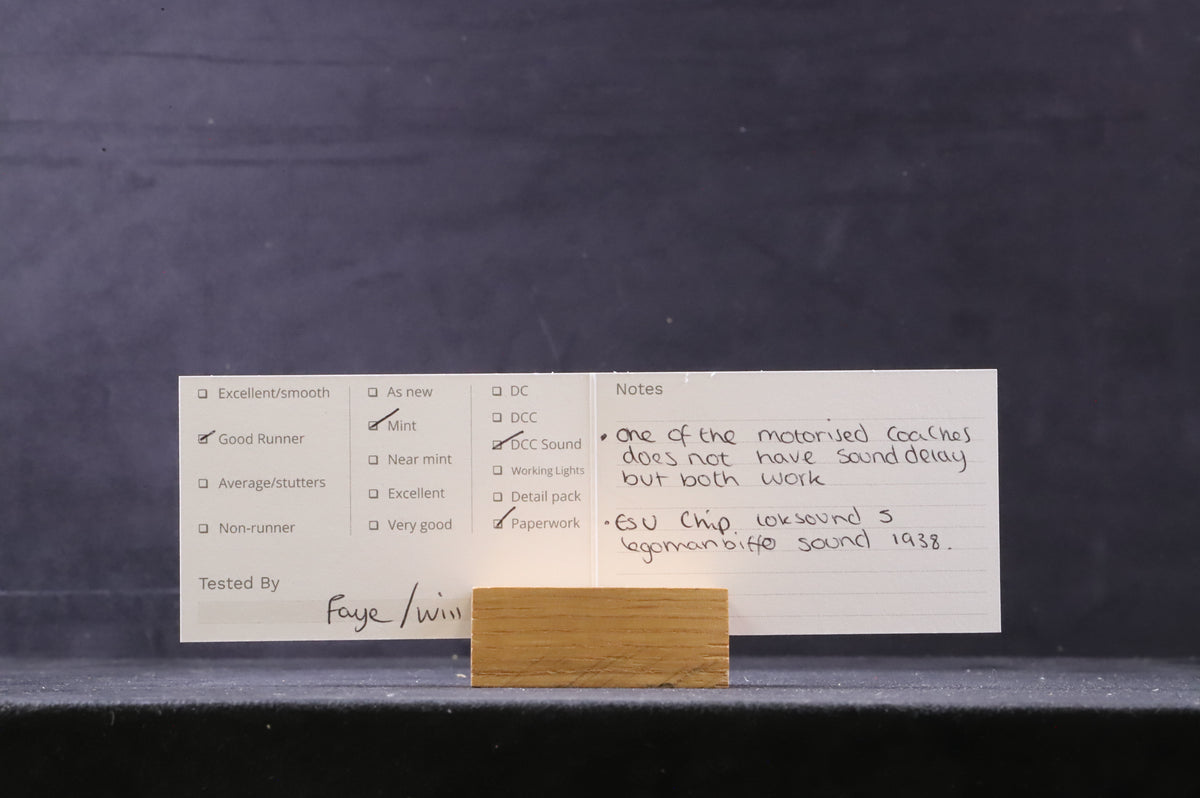 ☐ Excellent/smooth
☑ Good Runner
☐ Average/stutters
☐ Non-runner
☐ As new
☑ Mint
☐ Near mint
☐ Excellent
☐ Very good
☐ DC
☐ DCC
☑ DCC Sound
☐ Working Lights
☐ Detail pack
☑ Paperwork
Tested By
Faye / Will
Notes
• one of the motorised coaches
does not have sound delay
but both work
• ESU Chip loksound 5
legomanbiffo sound 1938.